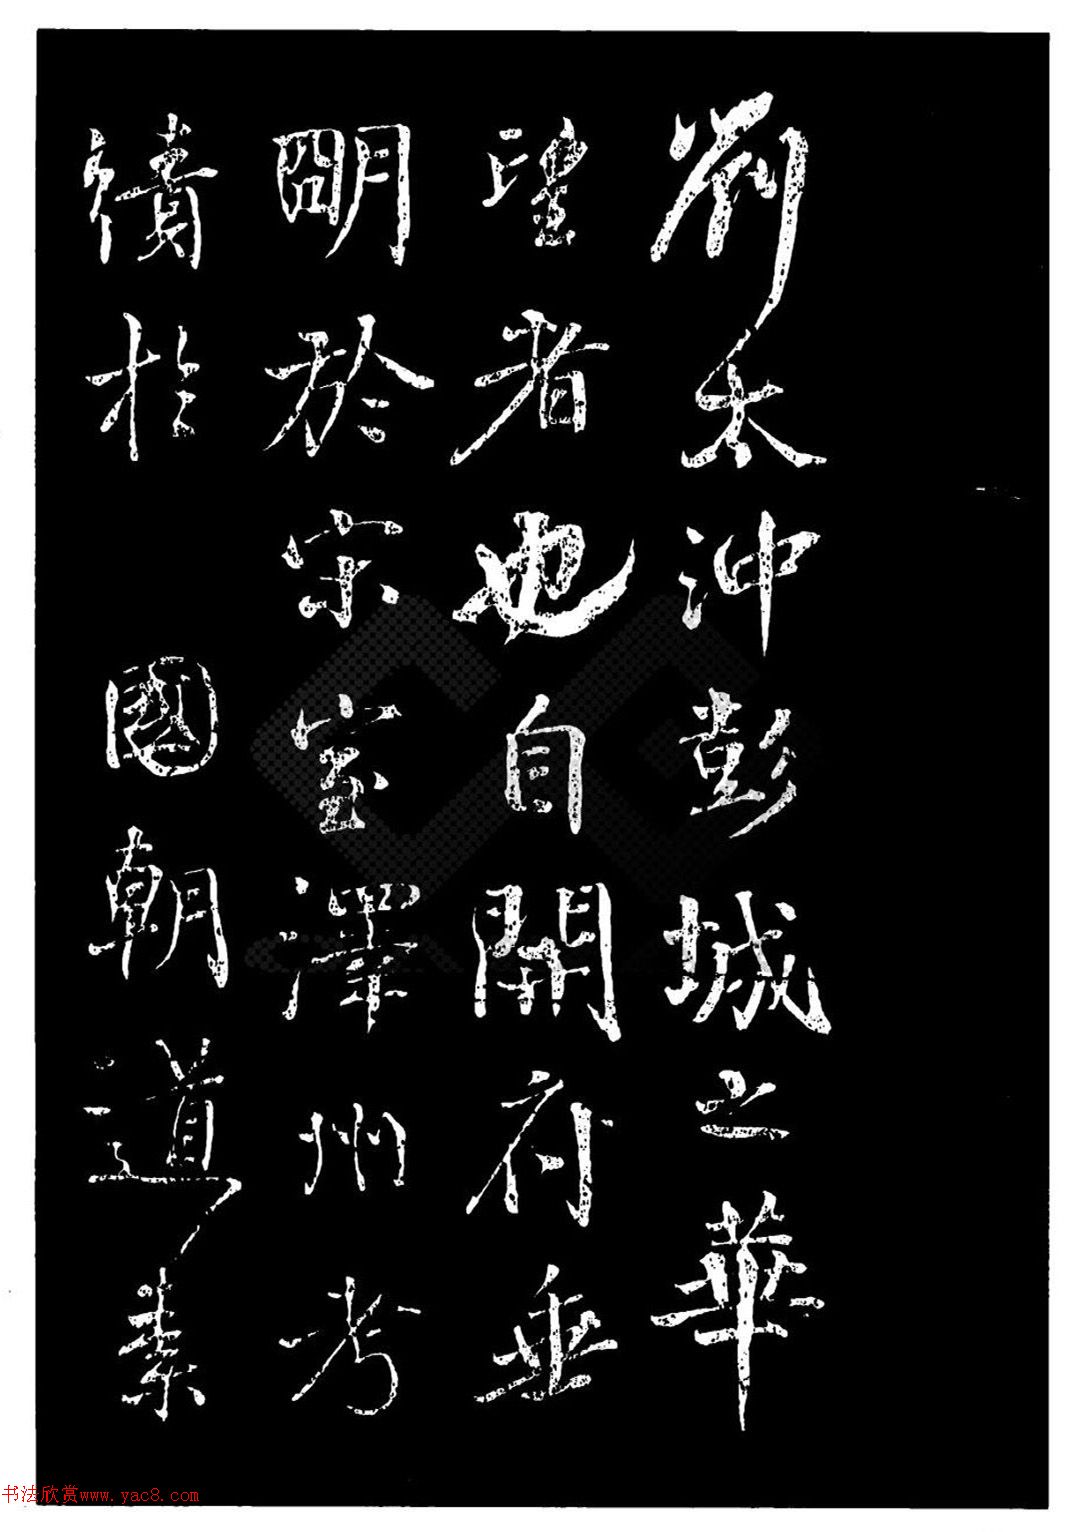 劉太沖彭城之華
望者也自開府垂
明於宋室澤州考
績於國朝道素
书法欣赏www.yac8.com